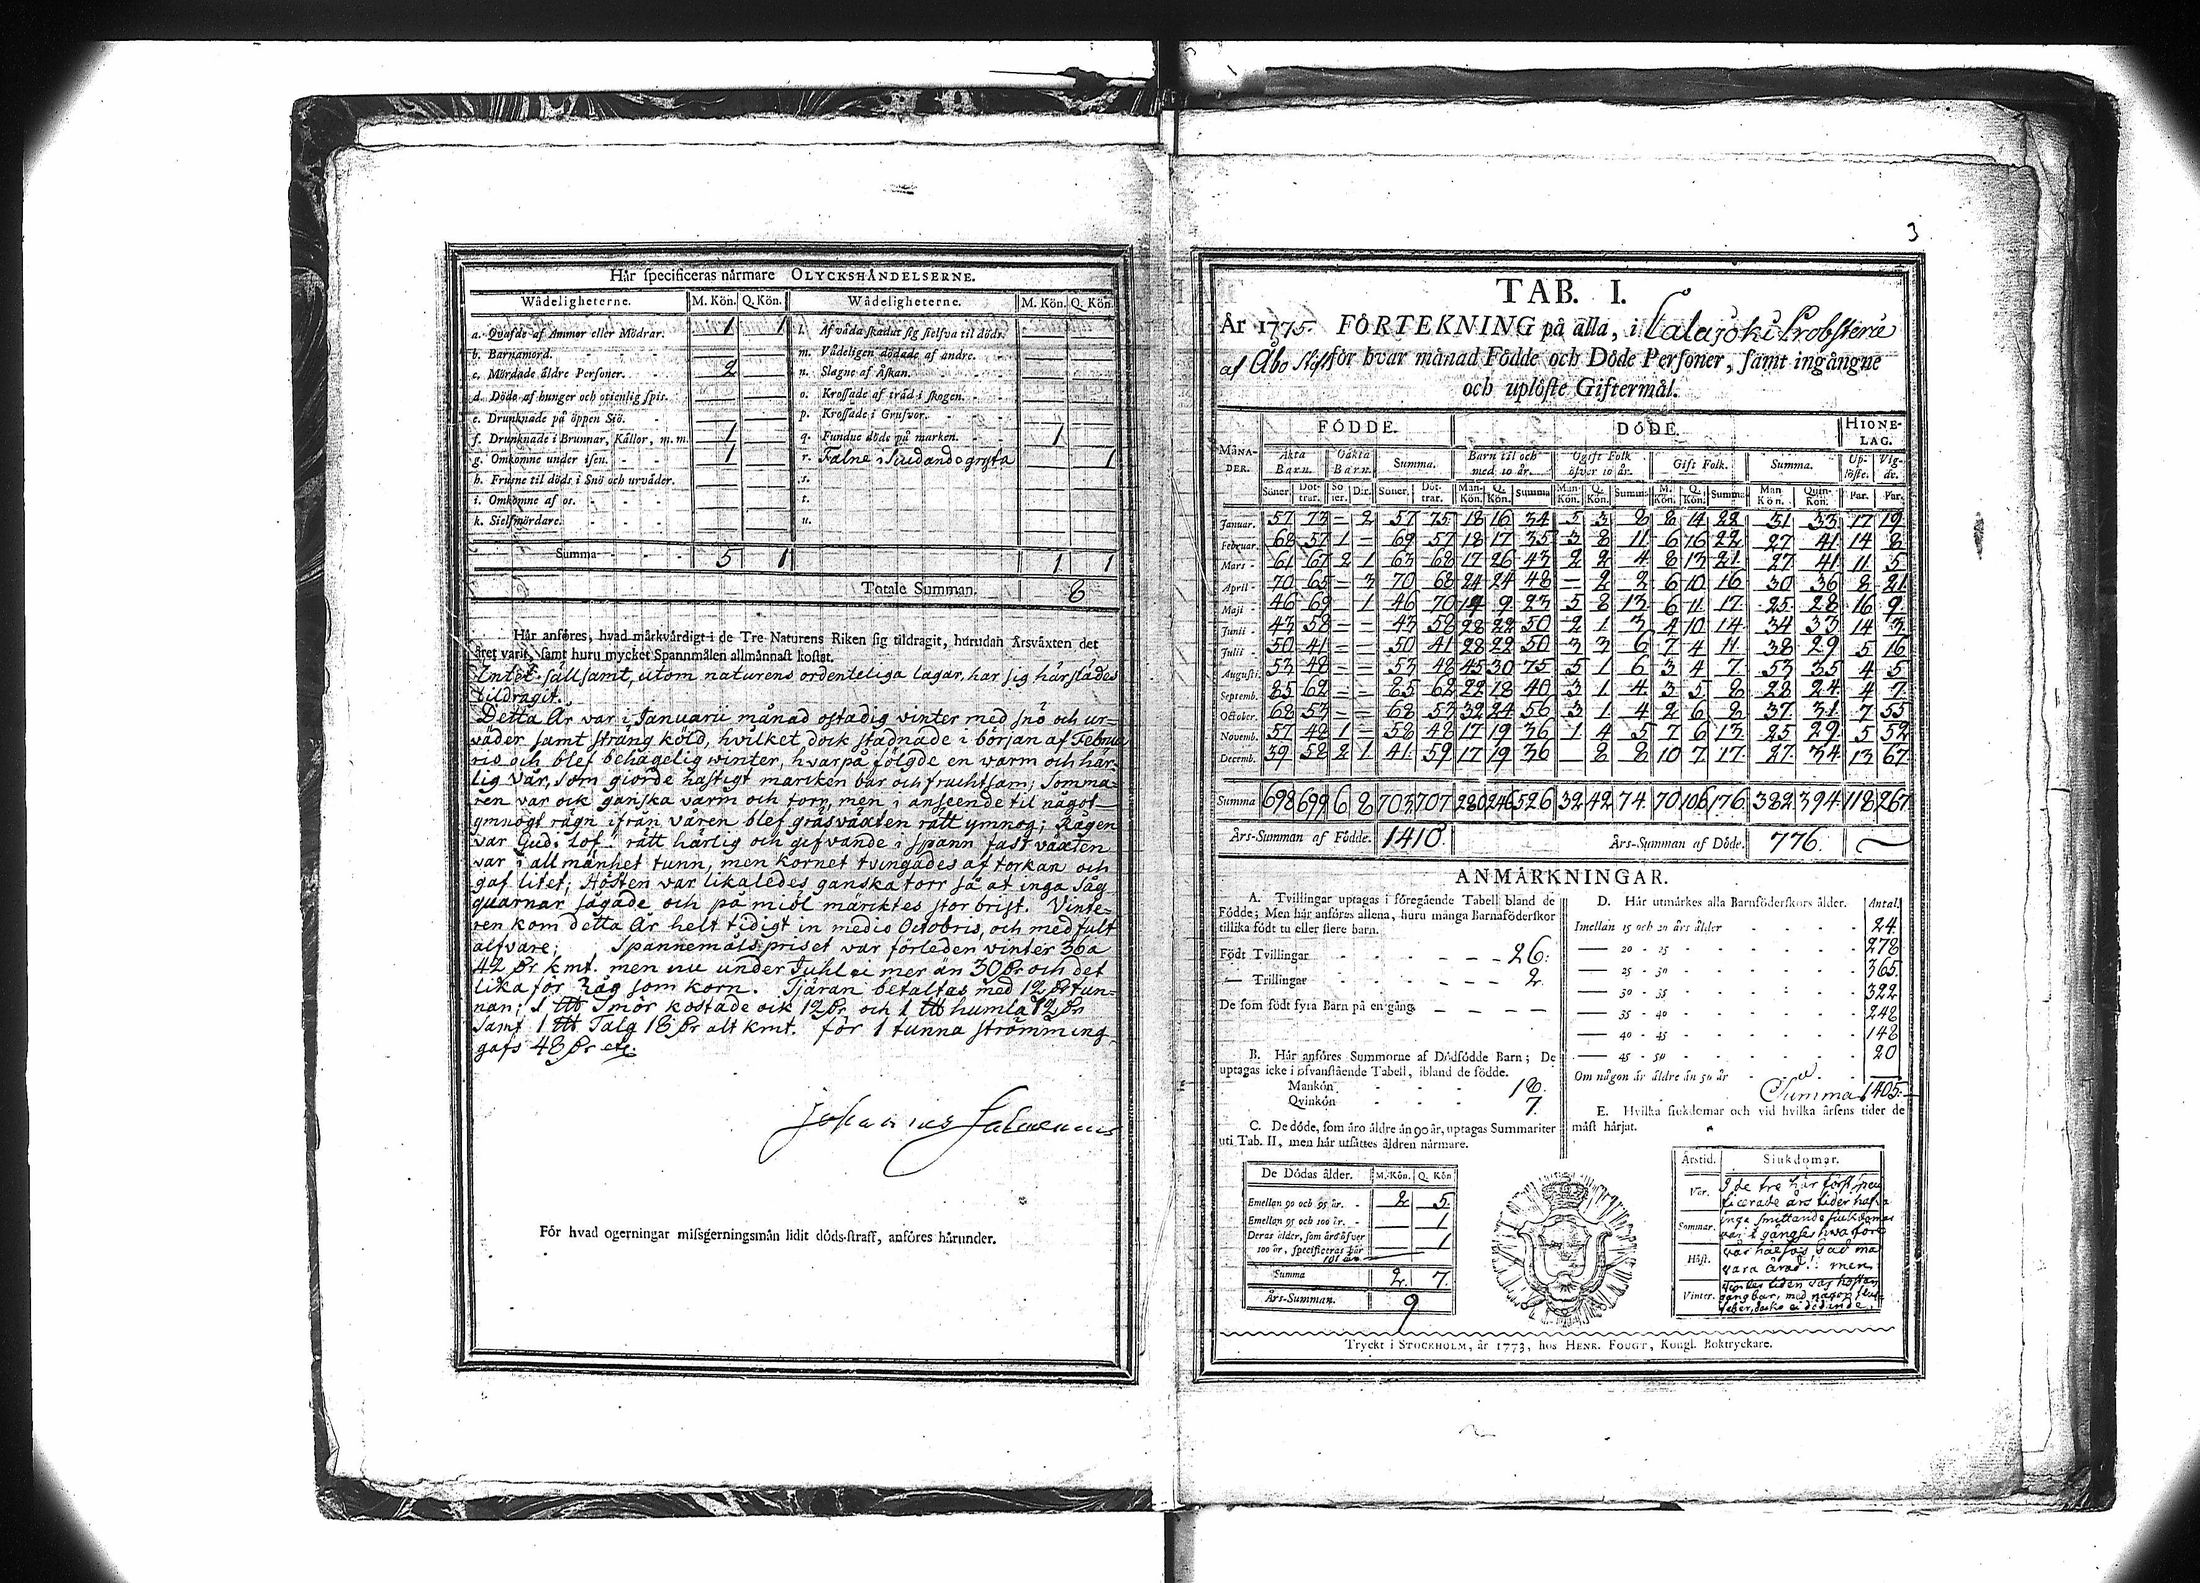 Hår specificeras nårmare OLYCKSHÅNDELSERNE.
Wådeligheterne. M. Kön. Q. Kön. Wådeligheterne. M. Kön. Q. Kön.
a. Qvafde af Ammor eller Mödrar. 1 1 l. Af våda skadat sig sielfva til döds.
b. Barnamord. m. Vådeligen dödade af andre.
c. Mördade åldre Personer. 2 n. Slagne af Åskan.
d. Döde af hunger och otienlig spis. o. Krossade af tråd i skogen.
e. Drunknade på öppen Siö. p. Krossade i Grufvor.
f. Drunknade i Brunnar, Kållor, m.m. 1 q. Fundne döde på marken. 1
g. Omkomne under isen. 1 r. Falne i Siudande gryta 1
h. Frusne til döds i Snö och urvåder. s.
i. Omkomne af os. t.
k. Sielfmördare. u.
Summa 5 1 1 1
Totale Summan. 8
Hår anföres, hvad mårkvårdigt i de Tre Naturens Riken sig tildragit, hurudan Årsvåxten det
året varit, samt huru mycket Spannmålen allmånnast kostat.
Intet sällsamt, utom naturens ordenteliga lagar, har sig härstädes
tildragit.
Detta År var i Januarii månad ostadig vinter med snö och ur-
väder samt sträng köld, hvilket dock stadnade i början af Februa
rii och blef behagelig winter, hvarpå fölgde en varm och här-
lig vår, som giorde hastigt marcken bar och fruchtsam; Somma-
ren var ock ganska varm och torr, men i anseende til något
ymnogt rägn ifrån våren blef gräsväxten rätt ymnog; Rågen
var Gudi lof rätt härlig och gifvande i spann fast växten
var i allmänhet tunn, men kornet tvingades af torkan och
gaf litet; Hösten var likaledes ganska torr så at inga såg
quarnar sågade och på miöl märktes stor brist. Vinte-
ren kom detta År helt tidigt in medio Octobris, och med fult
alfvare; Spannemåls priset var förleden vinter 36 a
42 Dr kmt. men nu under Juhl ei mer än 30 Dr och det
lika för råg som korn. Tjäran betaltas med 12 Dr tun-
nan; 1 ℔ Smör kostade ock 12 Dr och 1 ℔ humla 12 Dr
samt 1 ℔ Talg 18 Dr alt kmt. för 1 tunna strömming
gafs 48 Dr etc.
Johannes
För hvad ogerningar missgerningsmån lidit döds-straff, anföres hårunder.
3
TAB. I.
År 1775. FÖRTEKNING på alla, i Calajoki Probsterie
af Åbo Stift för hvar månad Födde och Döde Personer, samt ingångne
och uplöste Giftermål.
MÅNA-DER. FÖDDE. DÖDE. HIONE-LAG.
Äkta Barn. Oäkta Barn. Summa. Barn til och med 10 år. Ogift Folk öfver 10 år. Gift Folk. Summa. Up-löste. Vig-de.
Söner. Döt-trar. Sö-ner. Dtr. Söner. Döt-trar. Man-Kön. Q. Kön. Summa Man-Kön. Q. Kön. Summa M. Kön. Q. Kön. Summa Man Kön. Quin-Kön. Par. Par.
Januar. 57 73 – 2 57 75 18 16 34 5 3 8 8 14 22 31 33 17 19
Februar. 68 57 1 – 69 57 18 17 35 3 8 11 6 16 22 27 41 14 8
Mars 61 67 2 1 63 68 17 26 43 2 2 4 8 13 21 27 41 11 5
April 70 65 – 3 70 68 24 24 48 – 2 2 6 10 16 30 36 8 21
Maji 46 69 – 1 46 70 14 9 23 5 8 13 6 11 17 25 28 16 9
Junii 43 58 – – 43 58 28 22 50 2 1 3 4 10 14 34 33 14 3
Julii 50 41 – – 50 41 28 22 50 3 3 6 7 4 11 38 29 5 16
Augusti. 53 48 – – 53 48 45 30 75 5 1 6 3 4 7 53 35 4 5
Septemb. 85 62 – – 85 62 22 18 40 3 1 4 3 5 8 28 24 4 7
October. 68 53 – – 68 53 32 24 56 3 1 4 2 6 8 37 31 7 55
Novemb. 57 48 1 – 58 48 17 19 36 1 4 5 7 6 13 25 29 5 52
Decemb. 39 58 2 1 41 59 17 19 36 – 8 8 10 7 17 27 34 13 67
Summa 698 699 6 8 703 707 280 246 526 32 42 74 70 106 176 382 394 118 267
Års-Summan af Födde. 1410. Års-Summan af Döde. 776.
ANMÅRKNINGAR.
A. Tvillingar uptagas i föregående Tabell bland de
Födde; Men hår anföras allena, huru många Barnaföderskor
tillika födt tu eller flere barn.
Födt Tvillingar 26.
— Trillingar 2
De som födt fyra Barn på en gång.
B. Hår anföres Summorne af Dödfödde Barn; De
uptagas icke i ofvanstående Tabell, ibland de födde.
Mankön 18.
Qvinkön 7.
C. De döde, som åro åldre ån 90 år, uptagas Summariter
uti Tab. II, men hår utsåttes åldren nårmare.
De Dödas ålder. M. Kön. Q. Kön
Emellan 90 och 95 år. 2 5.
Emellan 95 och 100 år. 1
Deras ålder, som åro öfver
100 år, specificeras hår 1
101 år
Summa 2. 7.
Års-Summan. 9
D. Hår utmårkes alla Barnföderskors ålder. Antal
Imellan 15 och 20 års ålder 24
— 20 - 25 278
— 25 - 30 365
— 30 - 35 322
— 35 - 40 248
— 40 - 45 148
— 45 - 50 20
Om någon år åldre ån 50 år
Summa 1405.
E. Hvilka siukdomar och vid hvilka årsens tider de
måst hårjat.
Årstid. Siukdomar.
Vår. I de tre här först speci
ficerade års tider hafva
Sommar. inga smittande siukdomar
varit gångse
Höst.
vara ärad! men
Vinter. tiden var hostan
gångbar, med någon
feber, dock ei dödande.
Tryckt i STOCKHOLM, år 1773, hos HENR. FOUGT, Kongl. Boktryckare.